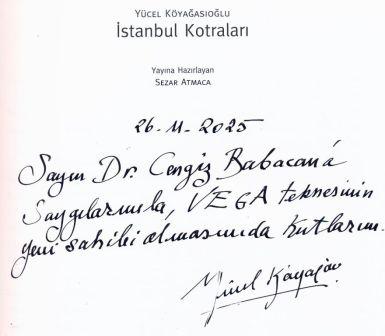 YÜCEL KÖYAĞASIOĞLU
İstanbul Kotraları
Yayına Hazırlayan
SEZAR ATMACA
26-11-2025
Sayın Dr. Cengiz Babacan'a
Saygılarımla, VEGA teknesinin
yeni sahibi olmasında kutlarım.
Yücel